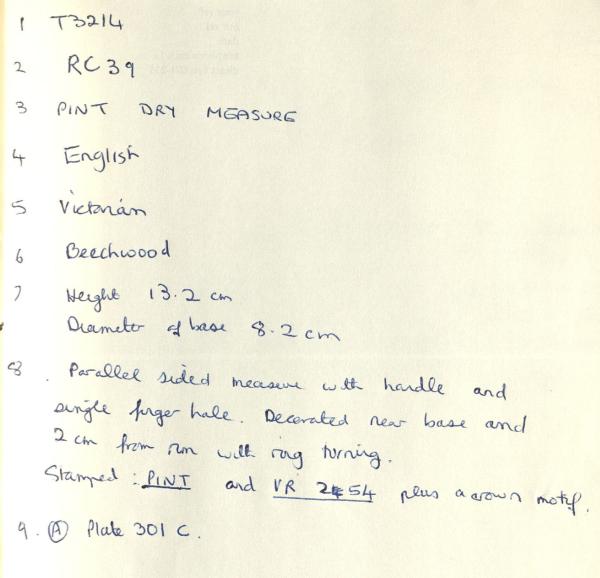 1 T3214
2 RC39
3 PINT DRY MEASURE
4 English
5 Victorian
6 Beechwood
7 Height 13.2 cm
Diameter of base 8.2 cm
8. Parallel sided measure with handle and
single finger hole. Decorated near base and
2 cm from rim with ring turning.
Stamped: PINT and VR 254 plus a crown motif.
9. A Plate 301 C.